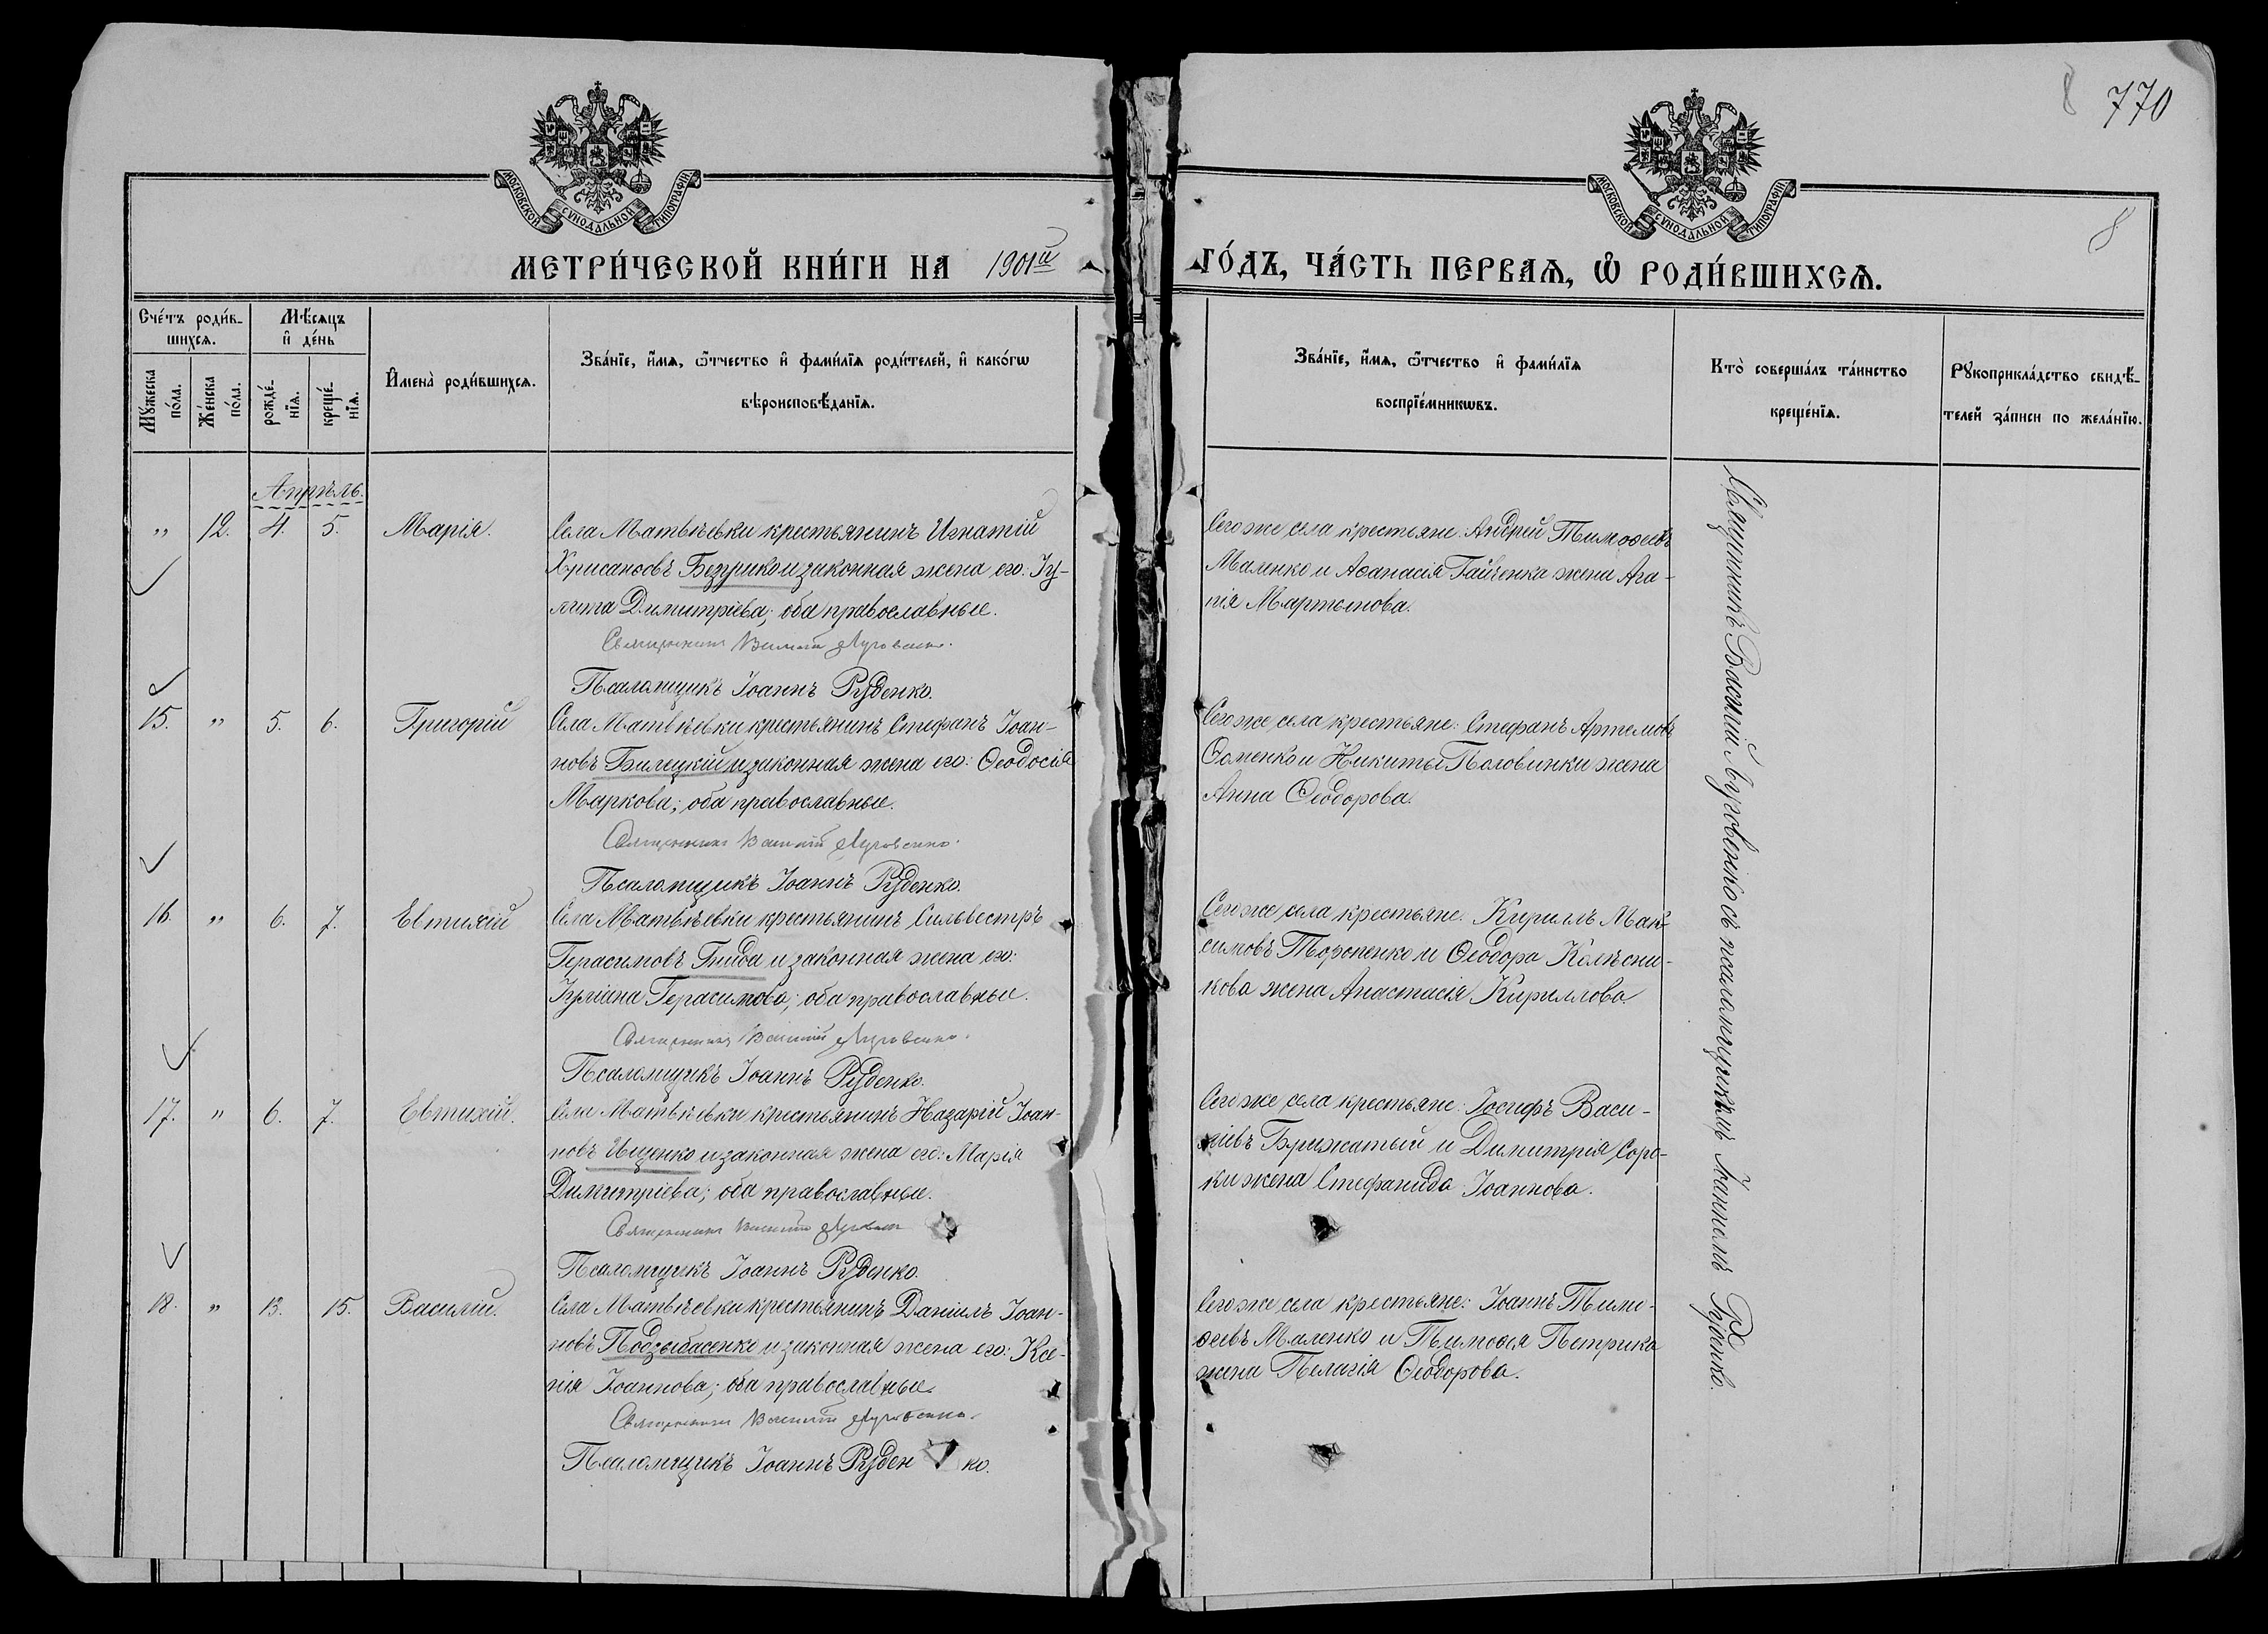 8 770
МОСКОВСКОЙ СѴНОДАЛЬНОЙ ТИПОГРАФІИ
МОСКОВСКОЙ СѴНОДАЛЬНОЙ ТИПОГРАФІИ
8
МЕТРИ́ЧЕСКОЙ КНИ́ГИ НА 1901й ГО́ДЪ, ЧА́СТЬ ПЕРВАѦ, Ѽ РОДИ́ВШИХСѦ.
Сче́тъ роди́в-
шихся.
Мѣ́сяцъ
и҆ де́нь
Мꙋ́жеска
по́ла.
Же́нска
по́ла.
рожде́-
нїя.
креще́-
нїя.
И҆мена̀ роди́вшихся.
Зва́нїе, и҆́мя, ѻ҆́тчество и҆ фами́лїя роди́телей, и҆ како́гѡ
вѣроисповѣ́данїя.
Зва́нїе, и҆́мя, ѻ҆́тчество и҆ фами́лїя
воспрїе́мникѡвъ.
Кто̀ соверша́лъ та́инство
креще́нїя.
Рꙋкоприкла́дство свидѣ́-
телей за́писи по жела́нїю.
Апрѣль.
„ 12. 4. 5. Марія.
Села Матвѣевки крестьянинъ Игнатій
Хрисановъ Безуико и законная жена его: Іу-
лита Димитріева; оба православные.
Священникъ Василій Луговенко.
Псаломщикъ Іоаннъ Руденко.
Сего же села крестьяне: Андрей Тимоѳеевъ
Маленко и Аѳанасія Гайченка жена Ага-
пія Мартынова.
15. „ 5. 6. Григорій
Села Матвѣевки крестьянинъ Стефанъ Іоан-
новъ Билецкій и законная жена его: Ѳеодосія
Маркова; оба православные.
Священникъ Василій Луговенко.
Псаломщикъ Іоаннъ Руденко.
Сего же села крестьяне: Стефанъ Артемовъ
Ѳоменко и Никиты Половинки жена
Анна Ѳеодорова.
16. „ 6. 7. Евтихій
Села Матвѣевки крестьянинъ Сильвестръ
Герасимовъ Гнида и законная жена его:
Іуліана Герасимова; оба православные.
Священникъ Василій Луговенко.
Псаломщикъ Іоаннъ Руденко.
Сего же села крестьяне: Кириллъ Мак-
симовъ Торопенко и Ѳеодора Колѣсни-
кова жена Анастасія Кириллова
17. „ 6. 7. Евтихій.
Села Матвѣевки крестьянинъ Назарій Іоан-
новъ Ищенко и законная жена его: Марія
Димитріева; оба православные.
Священникъ Василій Луговенко
Псаломщикъ Іоаннъ Руденко.
Сего же села крестьяне: Іосифъ Васи-
ліевъ Брижатый и Димитрія Соро-
ки жена Стефанида Іоаннова.
18. „ 13. 15. Василій.
Села Матвѣевки крестьянинъ Даніилъ Іоан-
новъ Подзыбасенко и законная жена его: Ксе-
нія Іоаннова; оба православные.
Священникъ Василій Луговенко.
Псаломщикъ Іоаннъ Руденко.
Сего же села крестьяне: Іоаннъ Тимо-
ѳеевъ Маленко и Тимоѳея Петрика
жена Пелагія Ѳеодорова.
Священникъ Василій Луговенко съ псаломщикомъ Іоанномъ Руденко.